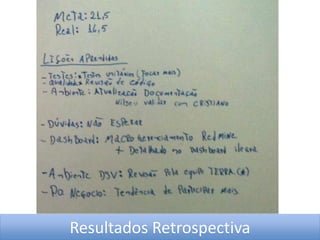 Meta: 21,5
Real: 16,5
Lições Aprendidas
- Testes: Testes unitários (focar mais)
- Qualidade: Revisão de Código
- Ambiente: Atualização Documentação
Nilseu validar com CRISTIANO
- Dúvidas: Não Esperar
- Dashboard: Macro Gerenciamento Redmine
+ Detalhado no Dashboard
- Ambiente DSV: Revisão Pela equipe TERRA (*)
- PO Negocio: Tendência de Participar mais
Resultados Retrospectiva